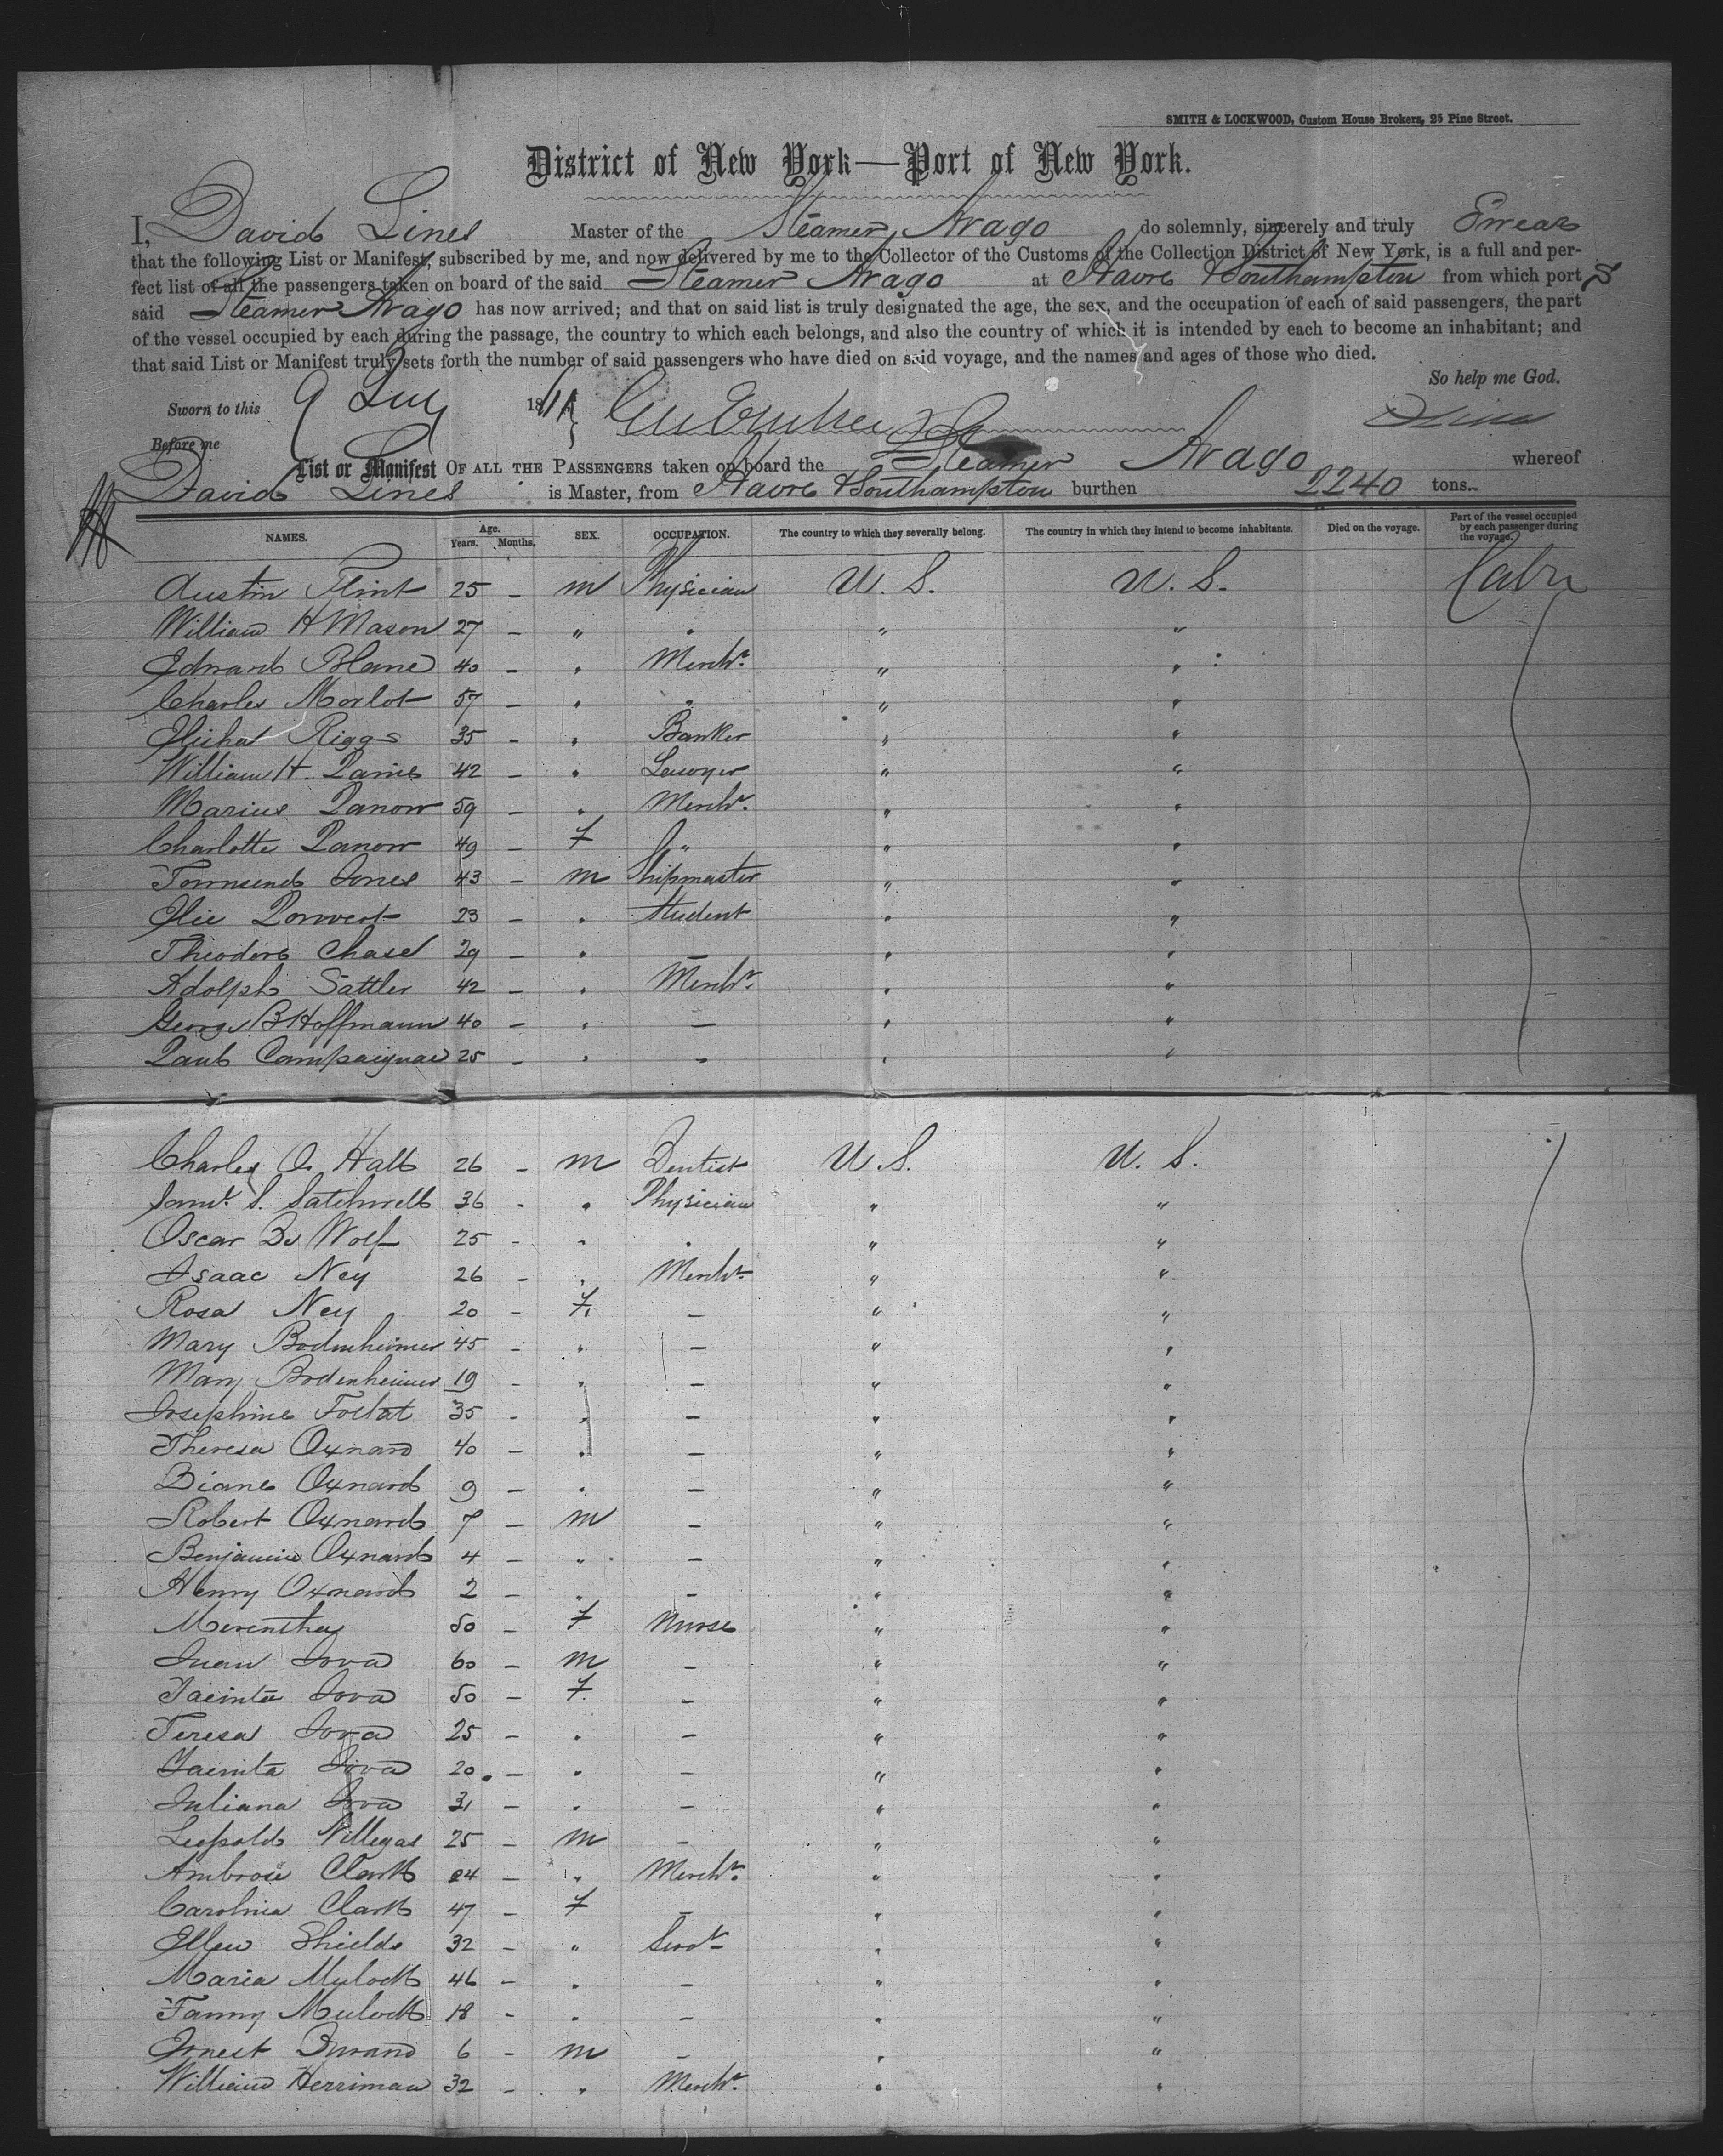 SMITH & LOCKWOOD, Custom House Brokers, 25 Pine Street.
District of New York—Port of New York.
I, David Lines Master of the Steamer Arago do solemnly, sincerely and truly Swear
that the following List or Manifest, subscribed by me, and now delivered by me to the Collector of the Customs of the Collection District of New York, is a full and per-
fect list of all the passengers taken on board of the said Steamer Arago at Havre & Southampton from which port s
said Steamer Arago has now arrived; and that on said list is truly designated the age, the sex, and the occupation of each of said passengers, the part
of the vessel occupied by each during the passage, the country to which each belongs, and also the country of which it is intended by each to become an inhabitant; and
that said List or Manifest truly sets forth the number of said passengers who have died on said voyage, and the names and ages of those who died.
So help me God.
Sworn to this 9 18
Before me
D Lines
List or Manifest OF ALL THE PASSENGERS taken on board the Steamer Arago whereof
David Lines is Master, from Havre & Southampton burthen 2240 tons.
NAMES. Age. Years. Months. SEX. OCCUPATION. The country to which they severally belong. The country in which they intend to become inhabitants. Died on the voyage. Part of the vessel occupied by each passenger during the voyage.
Austin Flint 25 - m Physician U. S. U. S. Cabin
William H Mason 27 - " " " "
Edward Blane 40 - " Mercht. " "
Charles Morlot 57 - " " " "
Elisha Riggs 35 - " Banker " "
William H. 42 - " Lawyer " "
Marius Panow 59 - " Mercht. " "
Charlotte Panow 49 - F " " "
Townsend Jones 43 - m Shipmaster " "
Elie 23 - " Student " "
Theodore Chase 29 - " — " "
Adolph Sattler 42 - " Mercht. " "
George B Hoffmann 40 - " — " "
Paul Campaignac 25 - " - " "
Charles A. Hall 26 - m Dentist U. S. U. S.
Saml. S. Satchwell 36 - " Physician " "
Oscar De Wolf 25 - " " " "
Isaac Ney 26 - " Mercht. " "
Rosa Ney 20 - F. — " "
Mary Bodenheimer 45 - " — " "
Mary Bodenheimer 19 - " — " "
Josephine 35 - " — " "
Theresa Oxnard 40 - " — " "
Diane Oxnard 9 - " — " "
Robert Oxnard 7 - m — " "
Benjamin Oxnard 4 - " — " "
Henry Oxnard 2 - " — " "
50 - F Nurse " "
Juan Jova 60 - m — " "
Jacinta Jova 50 - F. — " "
Teresa Jova 25 - " — " "
Jacinta Jova 20 - " — " "
Juliana Jova 31 - " — " "
Leopold Villegas 25 - m — " "
Ambrose Clark - " Mercht. " "
Carolina Clark 47 - F — " "
Ellen Shields 32 - " Servt " "
Maria Mulock 46 - " — " "
Fanny Mulock 18 - " — " "
Ernest Durand 6 - m — " "
William Herriman 32 - " Mercht. " "